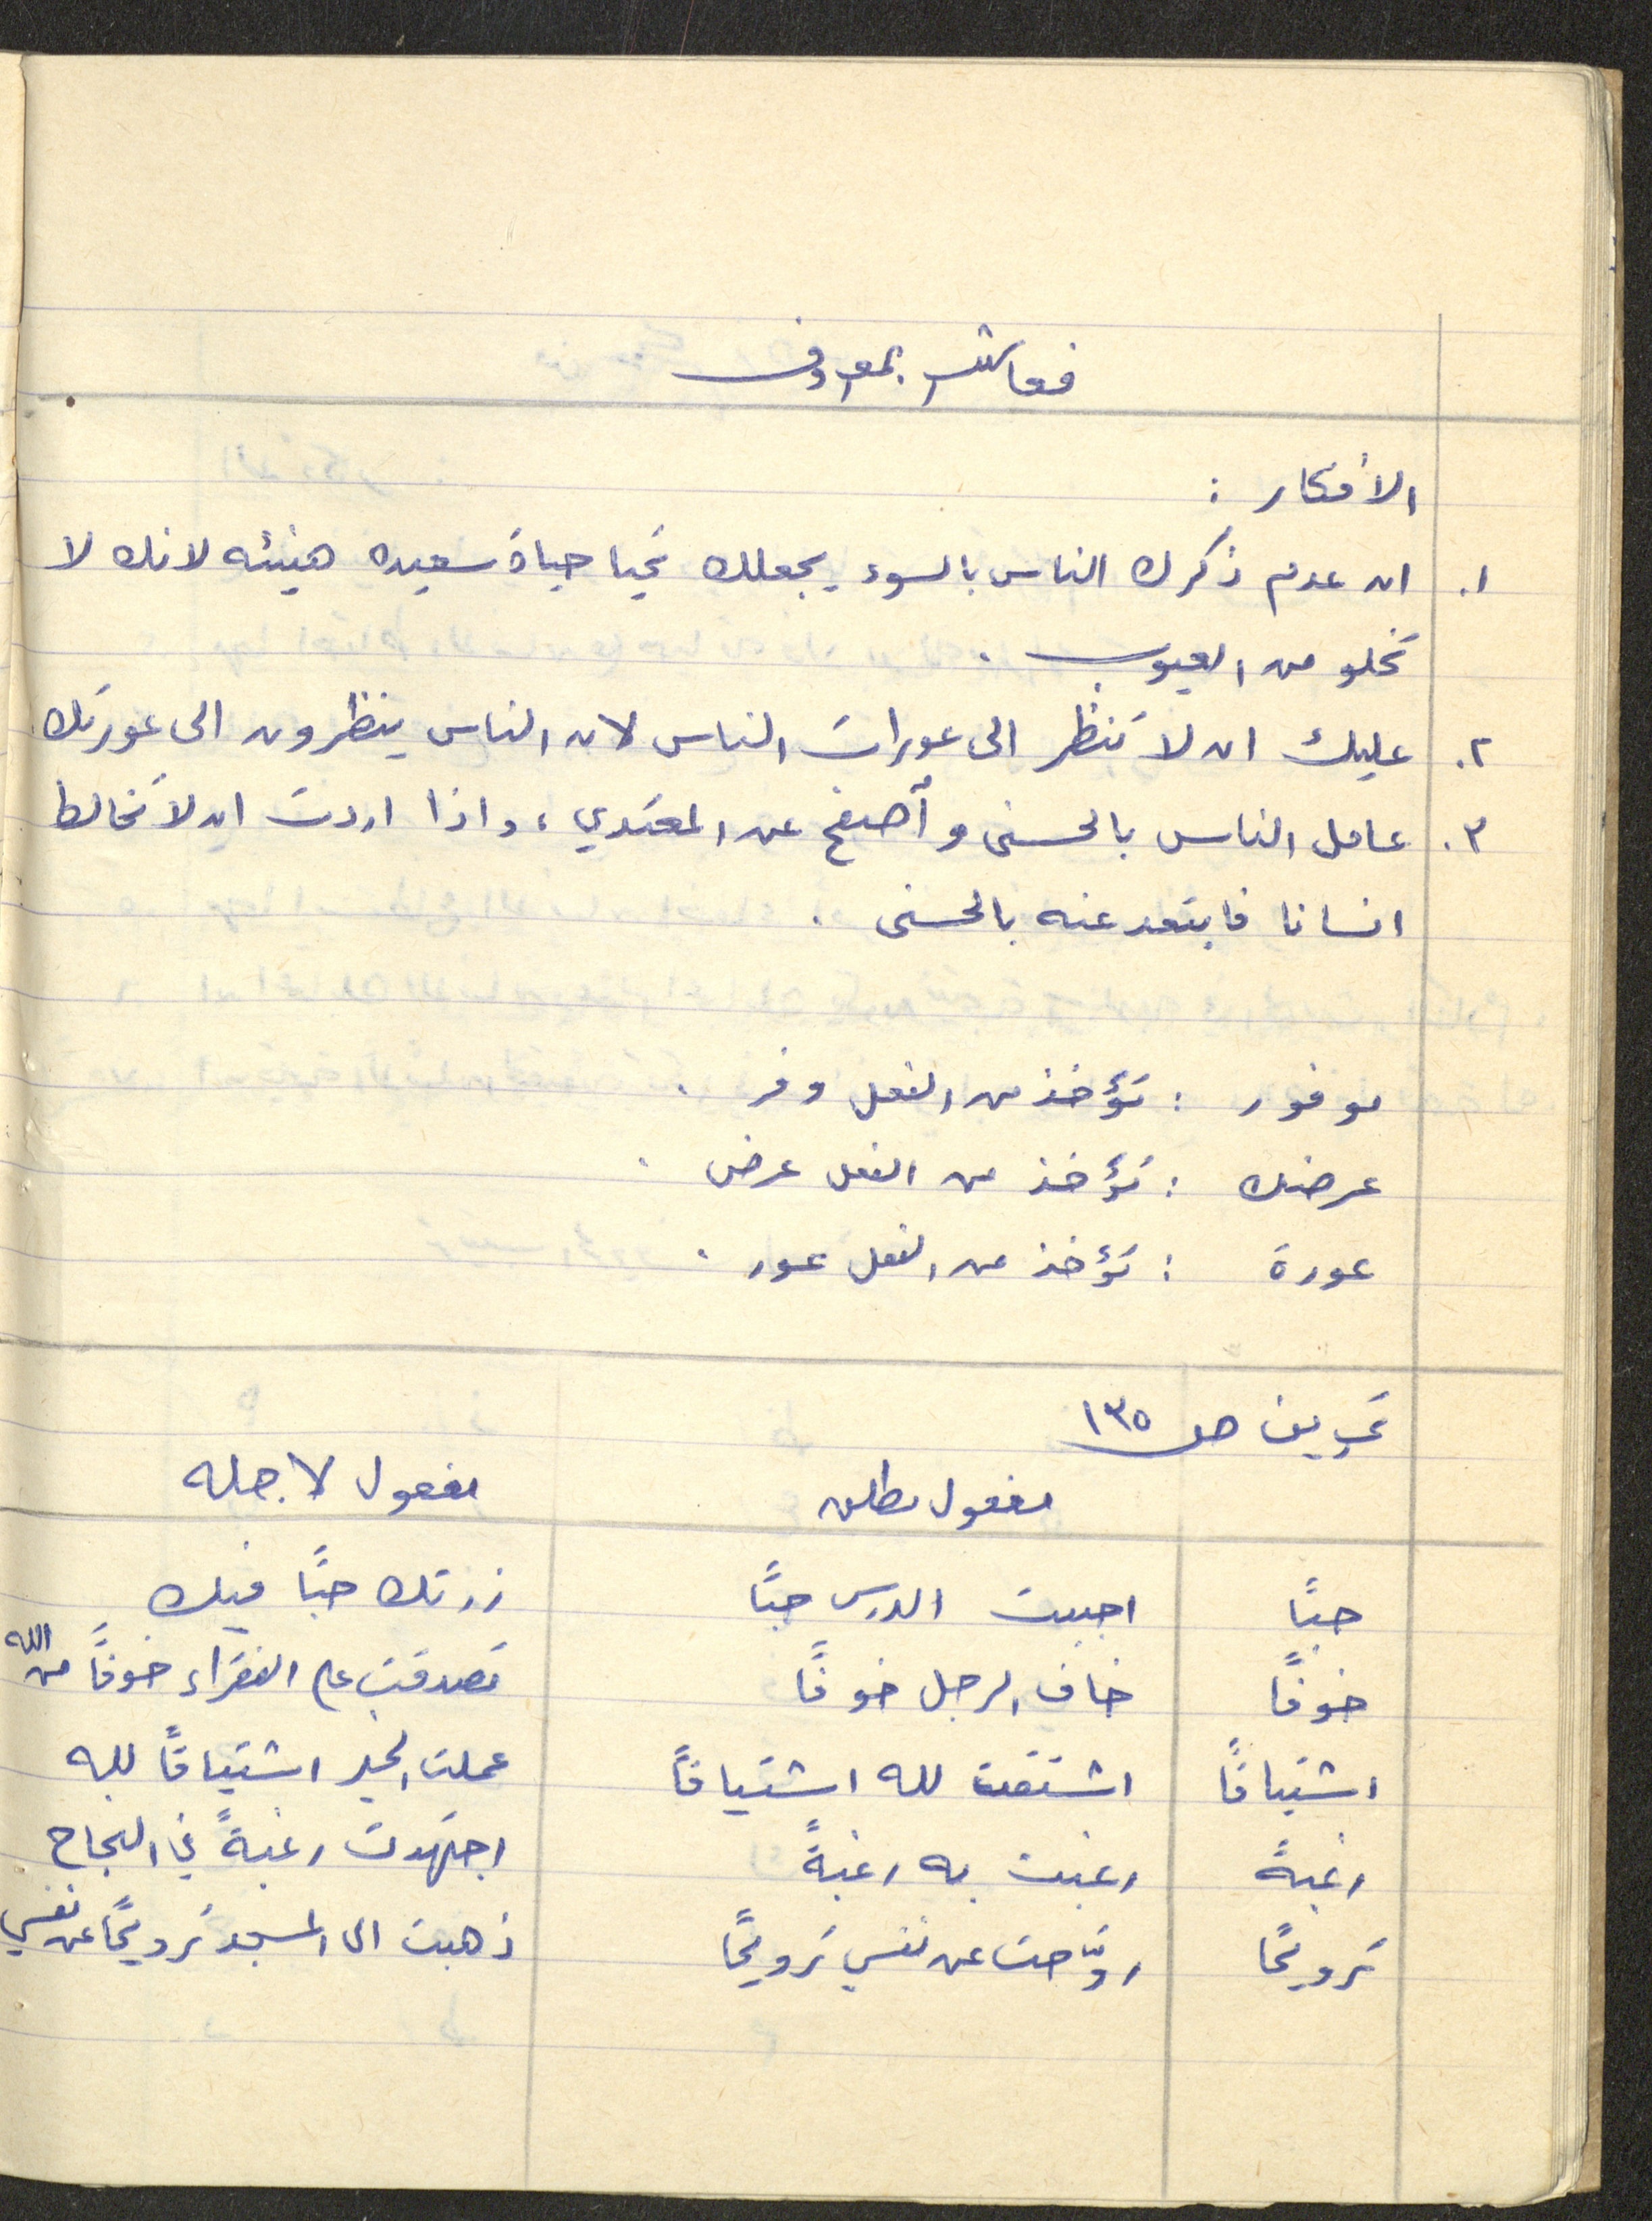 فعاشر بمعروف
الأفكار :
١. ان عدم ذكرك الناس بالسوء يجعلك تحيا حياة سعيده هنيئه لانك لا
تخلو من العيوب .
٢. عليك ان لا تنظر الى عورات الناس لان الناس ينظرون الى عورتك .
٣. عامل الناس بالحسنى وأصفح عن المعتدي ، واذا اردت ان لا تخالط
انسانا فابتعد عنه بالحسنى .
موفور : تؤخذ من الفعل وفر .
عرضك : تؤخذ من الفعل عرض .
عورة : تؤخذ من الفعل عور .
تمرين ص ١٣٥
مفعول مطلق مفعول لاجله
حبًا احببت الدرس حبًا زرتك حبًا فيك
خوفًا خاف الرجل خوفًا تصدقت على الفقراء خوفًا من الله
اشتياقًا اشتقت لله اشتياقًا عملت الخير اشتياقًا لله
رغبةً رغبت به رغبةً اجتهدت رغبةً في النجاح
ترويحًا روّحت عن نفسي ترويحًا ذهبت الى المسجد ترويحًا عن نفسي